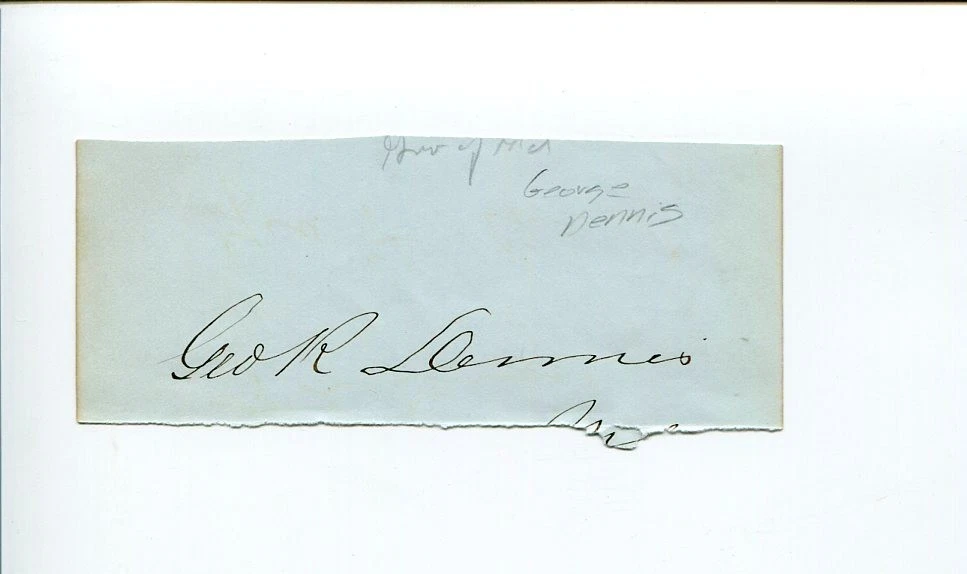 Gov of Md
George
Dennis
Geo R Dennis